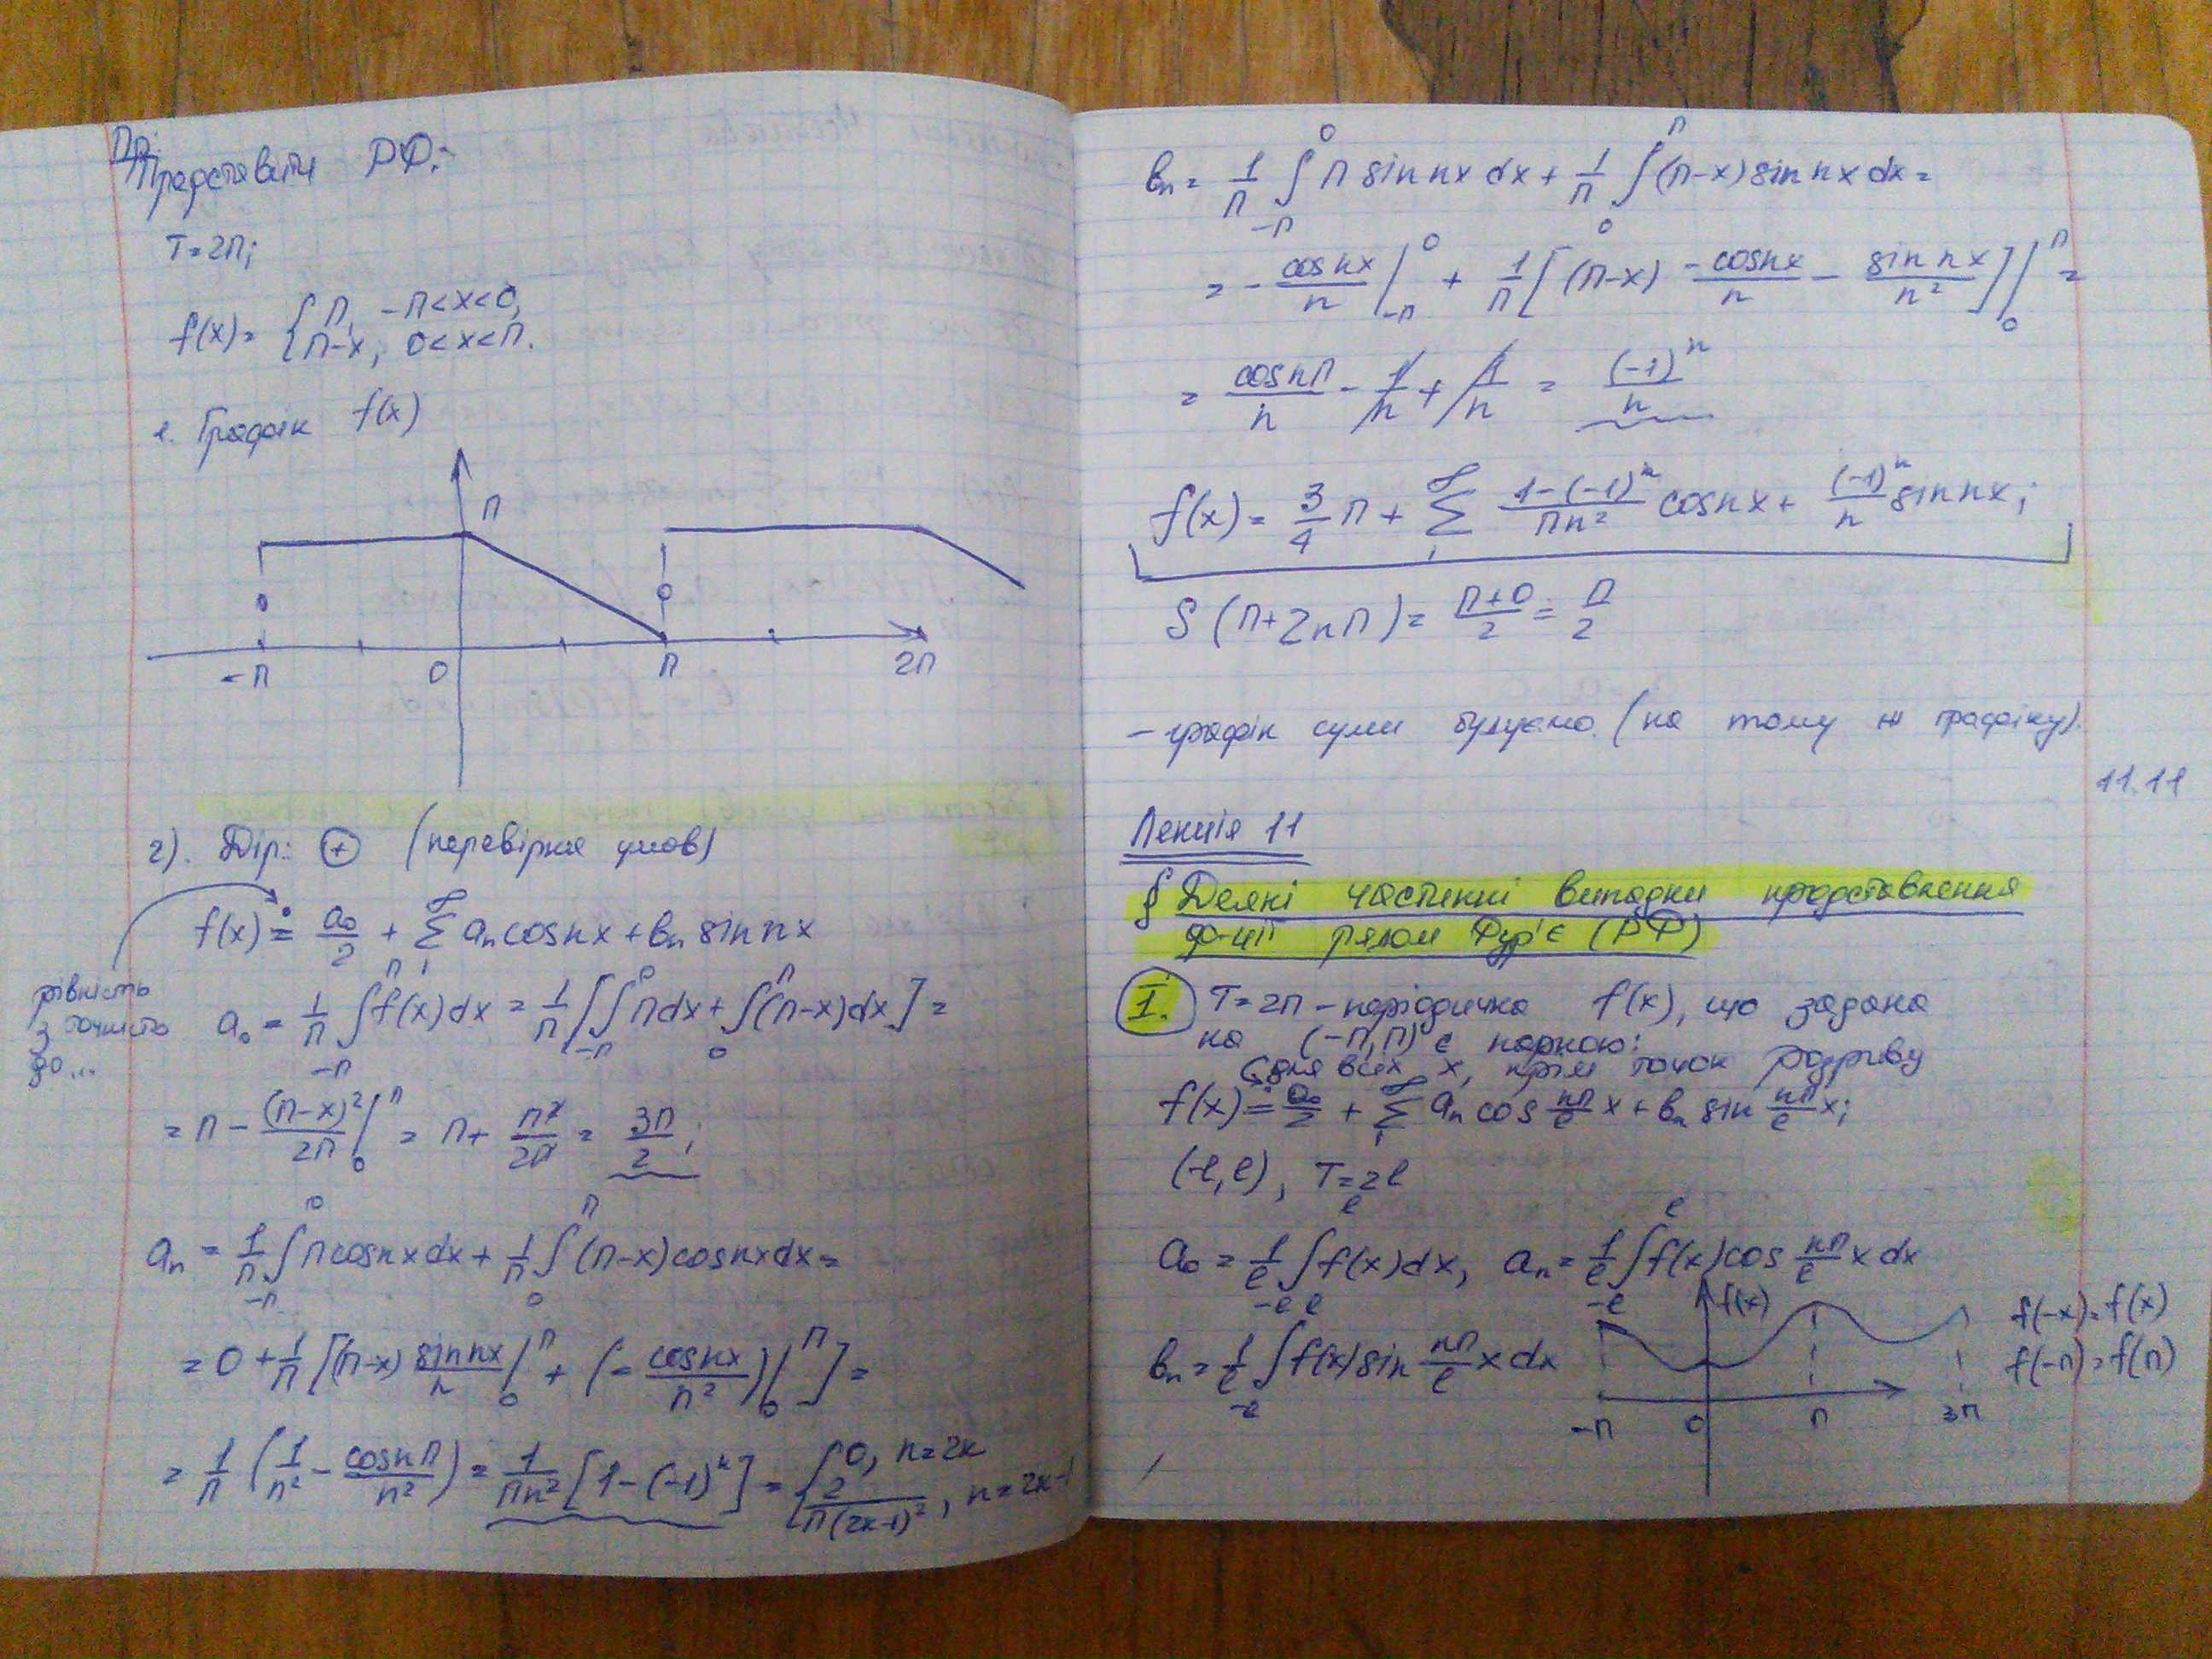 Пр.
Представити РФ:
T=2π;
f(x)= { π, -π<x<0,
π-x, 0<x<π.
1. Графік f(x)
π
-π 0 π 2π
2). Дір: ⊕ (перевірка умов)
f(x) ≐ a₀/2 + ∑₁^∞ aₙcosnx + bₙ sin nx
рівність
з точністю
до...
a₀ = 1/π ∫_{-π}^{π} f(x)dx = 1/π [∫_{-π}^{0} πdx + ∫_{0}^{π} (π-x)dx] =
= π - (π-x)²/2π |₀^π = π + π²/2π = 3π/2;
aₙ = 1/π ∫_{-π}^{0} πcosnxdx + 1/π ∫_{0}^{π} (π-x)cosnxdx =
= 0 + 1/π [(π-x) sin nx/n |₀^π + (- cosnx/n²)|₀^π] =
= 1/π (1/n² - cosnπ/n²) = 1/πn² [1-(-1)ⁿ] = { 0, n=2k
2/π(2k-1)², n=2k-1
bₙ = 1/π ∫_{-π}^{0} π sin nx dx + 1/π ∫_{0}^{π} (π-x) sin nx dx =
= - cosnx/n |_{-π}^{0} + 1/π [(π-x) -cosnx/n - sin nx/n²]|₀^π =
= cosnπ/n - 1/n + 1/n = (-1)ⁿ/n
f(x) = 3/4 π + ∑₁^∞ 1-(-1)ⁿ/πn² cosnx + (-1)ⁿ/n sin nx;
S(π+2nπ) = π+0/2 = π/2
- графік суми будуємо (на тому ж графіку).
11.11
Лекція 11
§ Деякі частинні випадки представлення
ф-ції рядом Фур'є (РФ)
I. T=2π - періодична f(x), що задана
на (-π,π) є парною:
для всіх x, крім точок розриву
f(x) ≐ a₀/2 + ∑₁^∞ aₙ cos nπ/l x + bₙ sin nπ/l x;
(-l,l), T=2l
a₀ = 1/l ∫_{-l}^{l} f(x)dx, aₙ = 1/l ∫_{-l}^{l} f(x)cos nπ/l x dx
bₙ = 1/l ∫_{-l}^{l} f(x)sin nπ/l x dx
f(x)
-π 0 π 3π
f(-x)=f(x)
f(-π)=f(π)